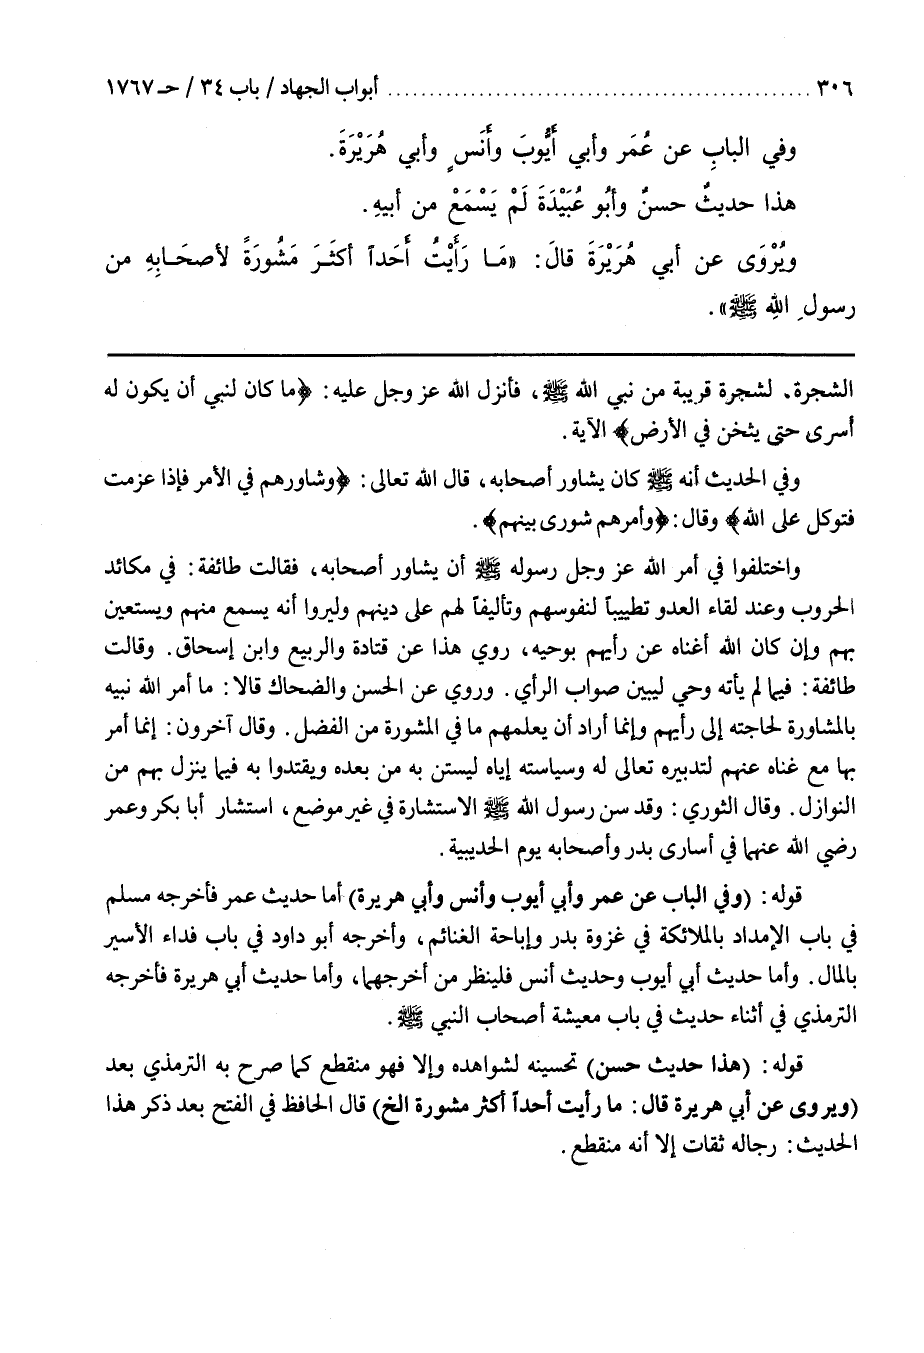 ٣٠٦ ................................................ أبواب الجهاد / باب ٣٤ / حـ ١٧٦٧
وفي البابِ عن عُمَر وأبي أَيُّوبَ وأَنَسٍ وأبي هُرَيْرَةَ.
هذا حديثٌ حسنٌ وأبُو عُبَيْدَةَ لَمْ يَسْمَعْ من أبيهِ.
ويُرْوَى عن أبي هُرَيْرَةَ قالَ: «مَـا رَأَيْتُ أَحَداً أكثَـرَ مَشُورَةً لأصحَـابِهِ من
رسولِ اللهِ ﷺ».
الشجرة. لشجرة قريبة من نبي الله ﷺ، فأنزل الله عز وجل عليه: ﴿ما كان لنبي أن يكون له
أسرى حتى يثخن في الأرض﴾ الآية.
وفي الحديث أنه ﷺ كان يشاور أصحابه، قال الله تعالى: ﴿وشاورهم في الأمر فإذا عزمت
فتوكل على الله﴾ وقال: ﴿وأمرهم شورى بينهم﴾.
واختلفوا في أمر الله عز وجل رسوله ﷺ أن يشاور أصحابه، فقالت طائفة: في مكائد
الحروب وعند لقاء العدو تطييباً لنفوسهم وتأليفاً لهم على دينهم وليروا أنه يسمع منهم ويستعين
بهم وإن كان الله أغناه عن رأيهم بوحيه، روي هذا عن قتادة والربيع وابن إسحاق. وقالت
طائفة: فيما لم يأته وحي ليبين صواب الرأي. وروي عن الحسن والضحاك قالا: ما أمر الله نبيه
بالمشاورة لحاجته إلى رأيهم وإنما أراد أن يعلمهم ما في المشورة من الفضل. وقال آخرون: إنما أمر
بها مع غناه عنهم لتدبيره تعالى له وسياسته إياه ليستن به من بعده ويقتدوا به فيما ينزل بهم من
النوازل. وقال الثوري: وقد سن رسول الله ﷺ الاستشارة في غير موضع، استشار أبا بكر وعمر
رضي الله عنهما في أسارى بدر وأصحابه يوم الحديبية.
قوله: (وفي الباب عن عمر وأبي أيوب وأنس وأبي هريرة) أما حديث عمر فأخرجه مسلم
في باب الإمداد بالملائكة في غزوة بدر وإباحة الغنائم، وأخرجه أبو داود في باب فداء الأسير
بالمال. وأما حديث أبي أيوب وحديث أنس فلينظر من أخرجهما، وأما حديث أبي هريرة فأخرجه
الترمذي في أثناء حديث في باب معيشة أصحاب النبي ﷺ.
قوله: (هذا حديث حسن) تحسينه لشواهده وإلا فهو منقطع كما صرح به الترمذي بعد
(ويروى عن أبي هريرة قال: ما رأيت أحداً أكثر مشورة الخ) قال الحافظ في الفتح بعد ذكر هذا
الحديث: رجاله ثقات إلا أنه منقطع.